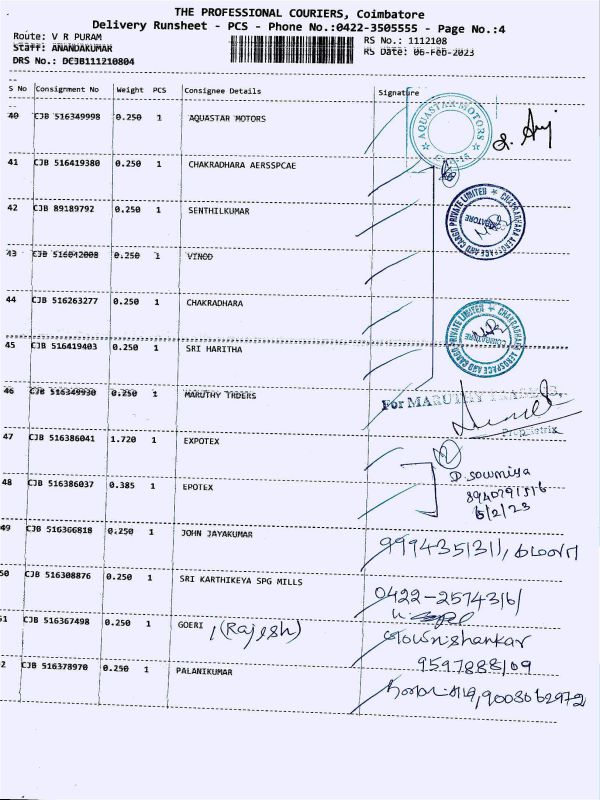 THE PROFESSIONAL COURIERS, Coimbatore
Delivery Runsheet - PCS - Phone No.:0422-3505555 - Page No.:4
Route: V R PURAM
RS No.: 1112108
Staff: ANANDAKUMAR
RS Date: 06-Feb-2023
DRS No.: DCJB111210804
S No Consignment No Weight PCS Consignee Details Signature
40 CJB 516349998 0.250 1 AQUASTAR MOTORS
AQUASTAR MOTORS
41 CJB 516419380 0.250 1 CHAKRADHARA AERSSPCAE
42 CJB 89189792 0.250 1 SENTHILKUMAR
CHAKRADHARA AEROSPACE AND CARGO PRIVATE LIMITED
COIMBATORE
43 CJB 516042008 0.250 1 VINOD
44 CJB 516263277 0.250 1 CHAKRADHARA
CHAKRADHARA AEROSPACE AND CARGO PRIVATE LIMITED
COIMBATORE
45 CJB 516419403 0.250 1 SRI HARITHA
46 CJB 516349930 0.250 1 MARUTHY TRDERS
For MARUTHY
Proprietrix
47 CJB 516386041 1.720 1 EXPOTEX
2
48 CJB 516386037 0.385 1 EPOTEX
D. Sowmiya
6/2/23
49 CJB 516366818 0.250 1 JOHN JAYAKUMAR
50 CJB 516308876 0.250 1 SRI KARTHIKEYA SPG MILLS
0422-2574316/
51 CJB 516367498 0.250 1 GOERI , (Rajesh)
Gowrishankar
9597888109
2 CJB 516378970 0.250 1 PALANIKUMAR
9003062972